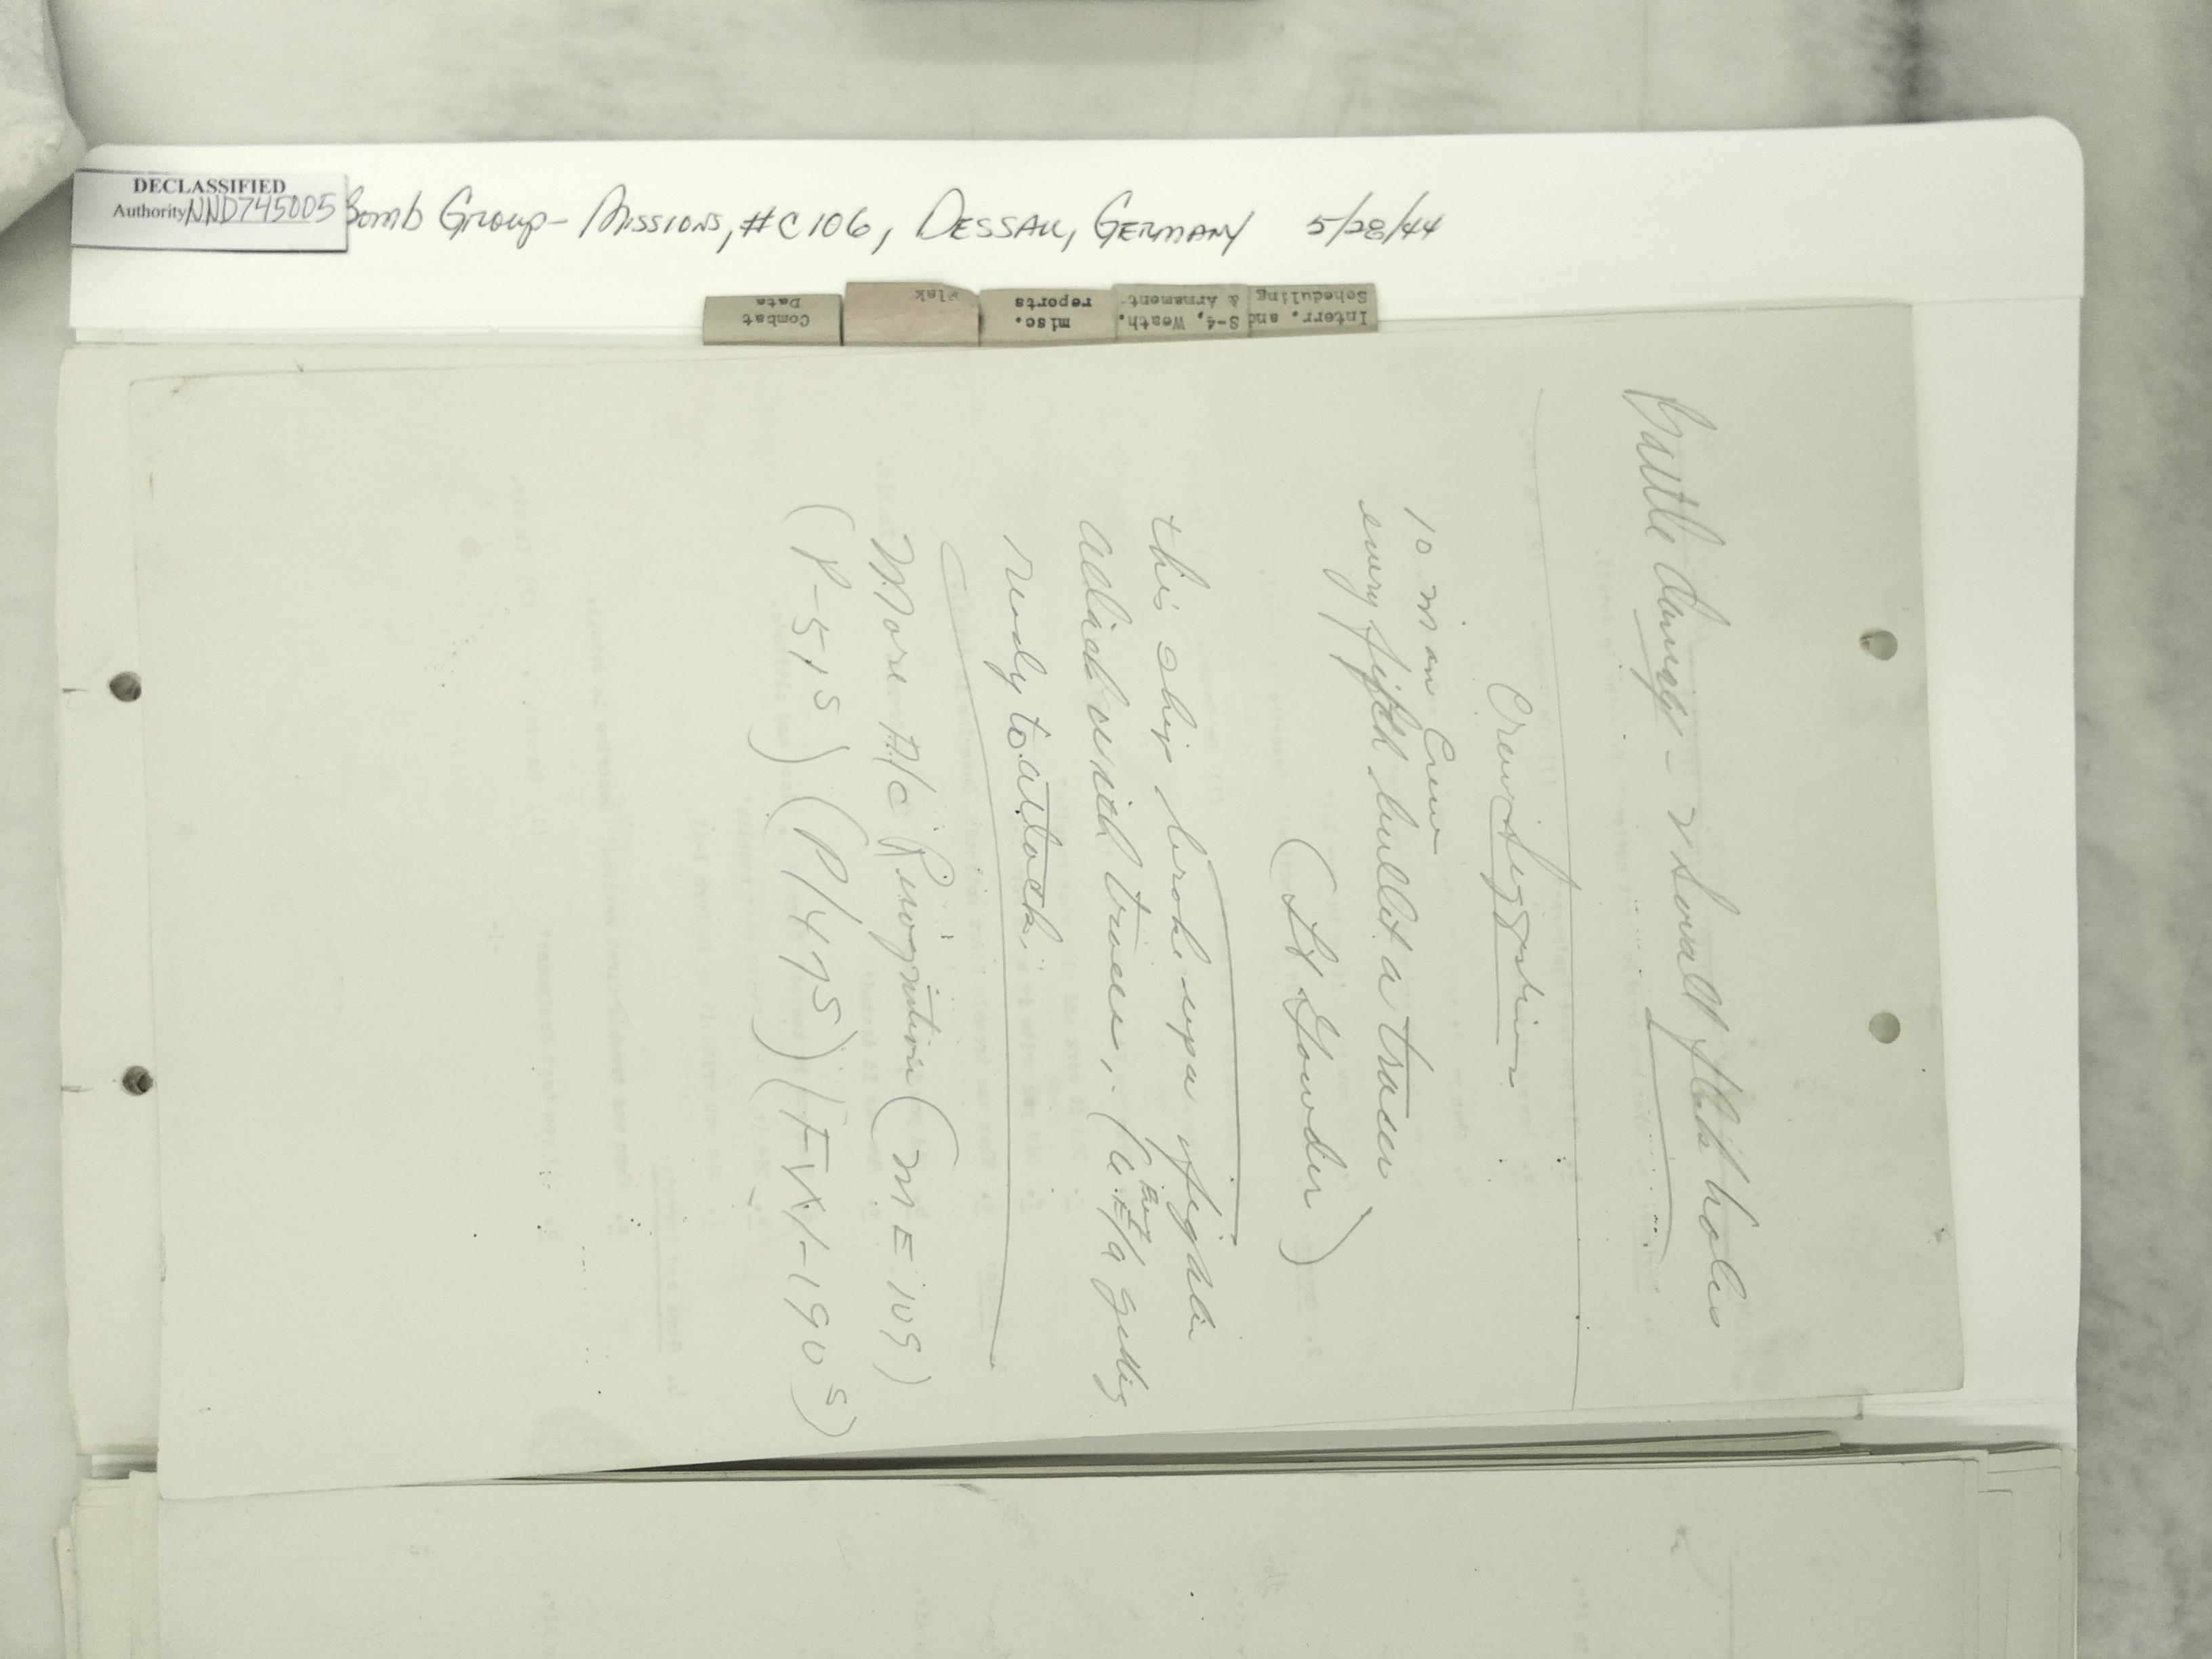 DECLASSIFIED
Authority NND745005
Bomb Group - Missions, #C106, Dessau, Germany 5/28/44
Combat
Data
Flak
misc.
reports
S-4, Weath.
& Armament
Interr. and
Scheduling
Battle damage - small flak holes
Crew Suggestions
10 man Crew
every fifth bullet a tracer
(Lt Gowder)
this ship broke up a fighter
attack with tracers, (
ready to attack.
More A/C Recognition (ME 109)
(P-51s) (P/47s) (FW-190s)